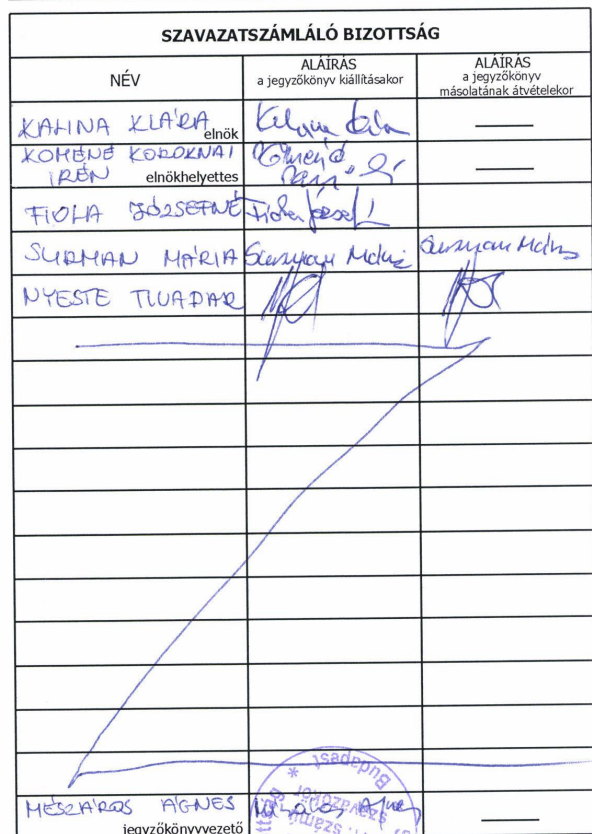 SZAVAZATSZÁMLÁLÓ BIZOTTSÁG
NÉV
ALÁÍRÁS
a jegyzőkönyv kiállításakor
ALÁÍRÁS
a jegyzőkönyv
másolatának átvételekor
KALINA KLÁRA elnök
KOMENÉ KOROKNAI
IRÉN elnökhelyettes
FIOLA JÓZSEFNÉ
SURMAN MÁRIA Surman Mária Surman Mária
NYESTE TIVADAR
MÉSZÁROS ÁGNES
jegyzőkönyvvezető
Budapest *